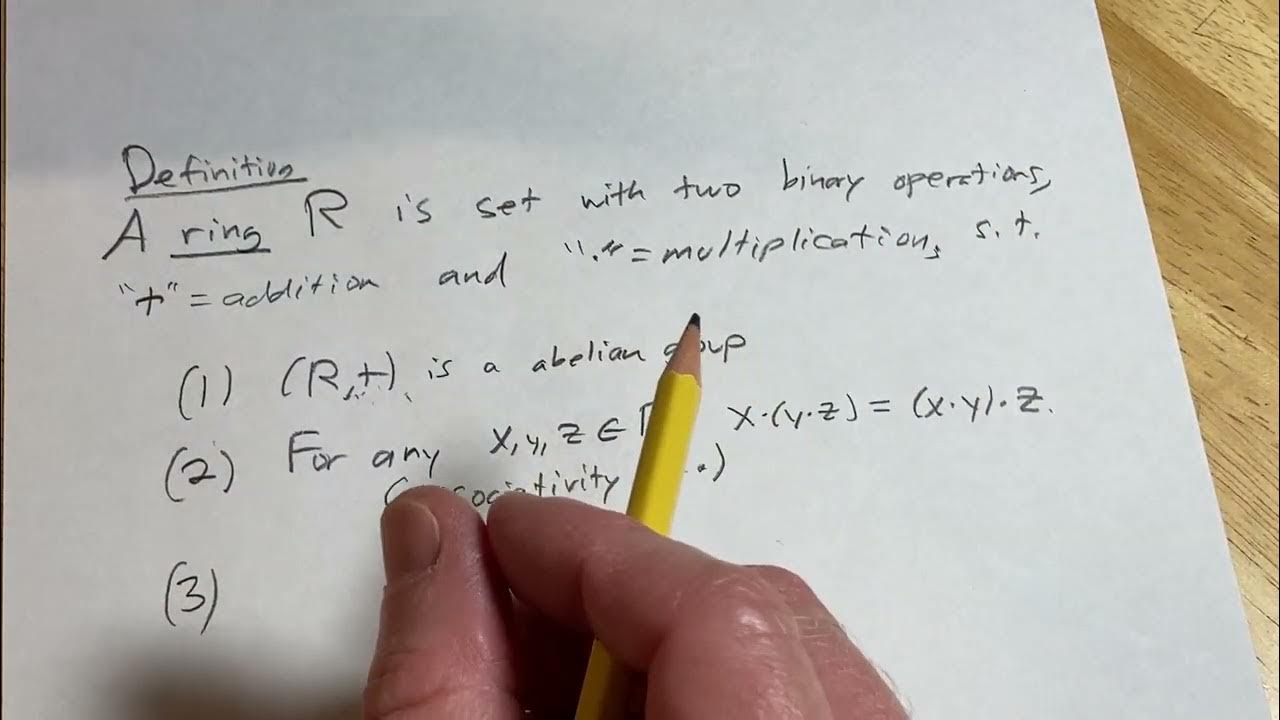 Definition
A ring R is set with two binary operations,
"+" = addition and "·" = multiplication, s.t.
(1) (R,+) is a abelian group
(2) For any x, y, z ∈ x·(y·z) = (x·y)·z.
(3)